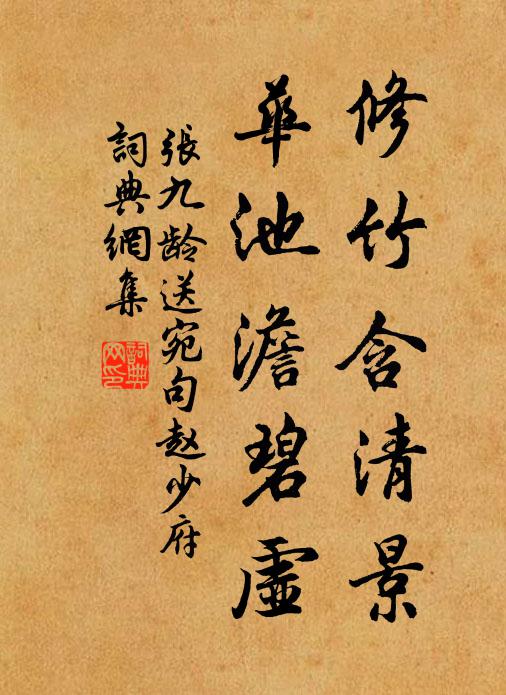 修竹含清景
華池澹碧虛
張九龄送宛句赵少府
詞典網集
詞典网印